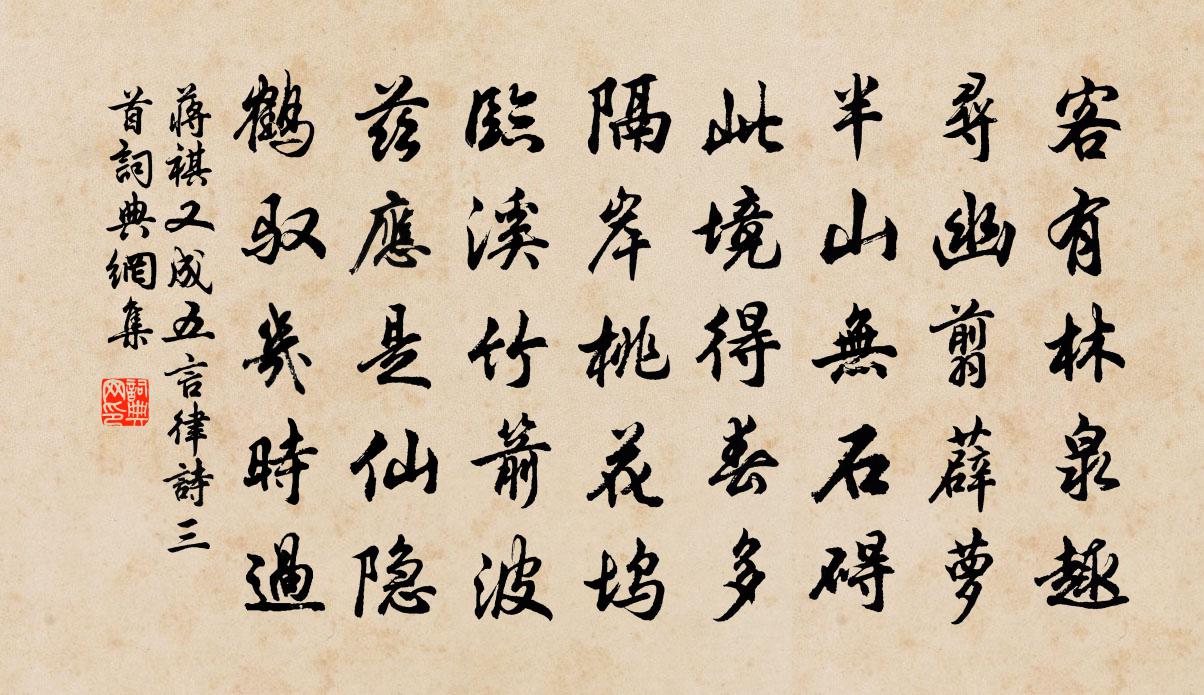 客有林泉趣
尋幽翦薜萝
半山無石碍
此境得春多
隔岸桃花坞
臨溪竹箭波
兹應是仙隐
鶴驭幾時過
蒋祺又成五言律詩三
首詞典網集
詞典
网印